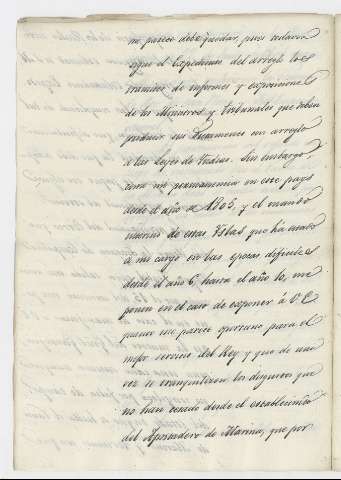 me parece debe quedar, pues todavia
sigue el Expediente del arreglo los
tramites de informes y exposiciones
de los Ministros y Tribunales que deben
producir sus Dictamenes con arreglo
a las Leyes de Yndias. Sin embargo,
como mi permanencia en este pays
desde el año de 1805, y el mando
marino de estas Yslas que ha estado
a mi cargo en las epocas dificiles
desde el año 6, hasta el año 10, me
ponen en el caso de exponer á V.E.
quanto me parece oportuno para el
mejor servicio del Rey y que de una
vez se tranquilizen los disgustos que
no han cesado desde el establecimto
del Apostadero de Marina, que por